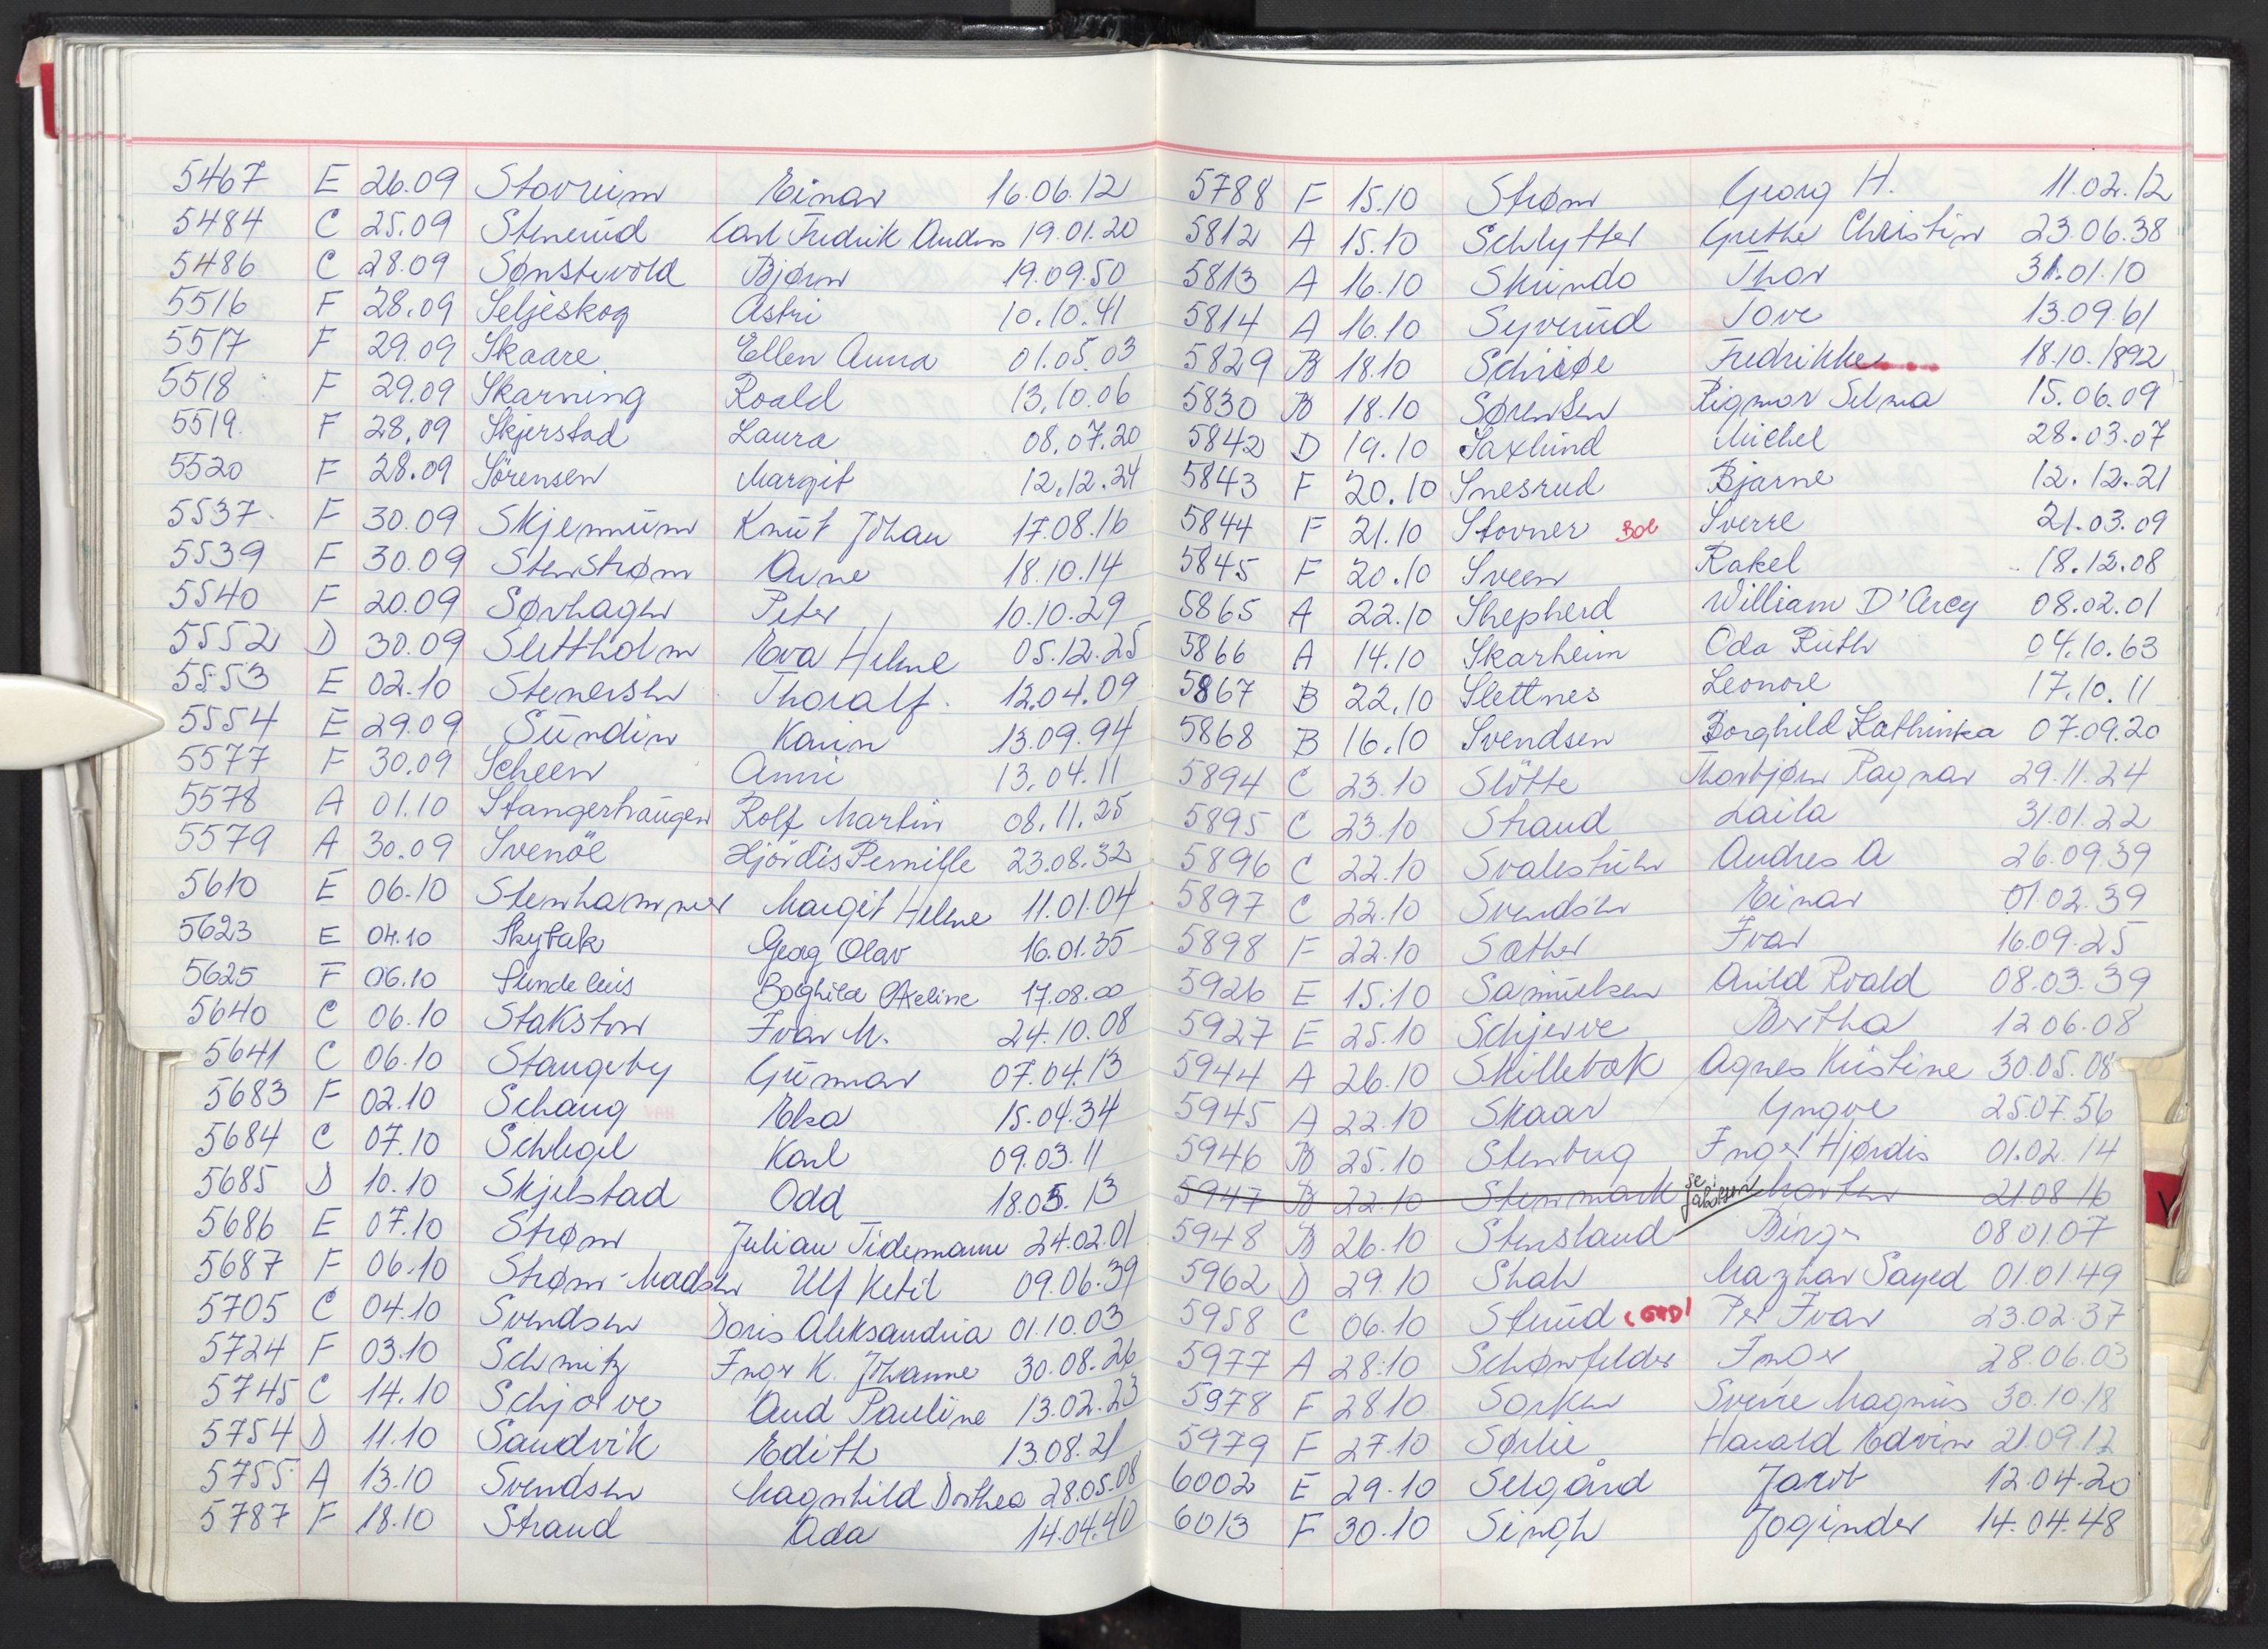 5467 E 26.09 Stavreim Einar 16.06.12
5484 C 25.09 Stenerud Carl Fredrik Anders 19.01.20
5486 C 28.09 Sønstevold Bjørn 19.09.50
5516 F 28.09 Seljeskog Astri 10.10.41
5517 F 29.09 Skaare Ellen Anna 01.05.03
5518 F 29.09 Skarning Roald 13.10.06
5519 F 28.09 Skjerstad Laura 08.07.20
5520 F 28.09 Sörensen Margit 12.12.24
5537 F 30.09 Skjennum Knut Johan 17.08.16
5539 F 30.09 Stenstrøm Arne 18.10.14
5540 F 20.09 Sørhagen Peter 10.10.29
5552 D 30.09 Slettholm Eva Helene 05.12.25
5553 E 02.10 Stenersen Thoralf 12.04.09
5554 E 29.09 Sundin Karin 13.09.94
5577 F 30.09 Scheen Anni 13.04.11
5578 A 01.10 Stangerhaugen Rolf Martin 08.11.25
5579 A 30.09 Svenöe Hjördis Pernille 23.08.32
5610 E 06.10 Stenhammer Margit Helene 11.01.04
5623 E 04.10 Skybak Georg Olav 16.01.35
5625 F 06.10 Sundelius Borghild Okeline 17.08.00
5640 C 06.10 Stakston Ivar M. 24.10.08
5641 C 06.10 Stangeby Gunnar 07.04.13
5683 F 02.10 Schaug Elsa 15.04.34
5684 C 07.10 Schlegel Karl 09.03.11
5685 D 10.10 Skjelstad Odd 18.05.13
5686 E 07.10 Strøm Julian Tidemann 24.02.01
5687 F 06.10 Strøm-Madsen Ulf Ketil 09.06.39
5705 C 04.10 Svendsen Doris Aleksandria 01.10.03
5724 F 03.10 Schmitz Inger K. Johanne 30.08.26
5745 C 14.10 Schjølve Aud Pauline 13.02.23
5754 D 11.10 Sandvik Edith 13.08.21
5755 A 13.10 Svendsen Magnhild Dorthea 28.05.08
5787 F 18.10 Strand Ada 14.04.40
5788 F 15.10 Strøm Georg H. 11.02.12
5812 A 15.10 Schlytter Grethe Christin 23.06.38
5813 A 16.10 Skundo Thor 31.01.10
5814 A 16.10 Syverud Tove 13.09.61
5829 B 18.10 Schiøe Fredrikke 18.10.1892
5830 B 18.10 Sørensen Rigmor Selma 15.06.09
5842 D 19.10 Saxlund Michel 28.03.07
5843 F 20.10 Snesrud Bjarne 12.12.21
5844 F 21.10 Stovner Bol Sverre 21.03.09
5845 F 20.10 Sveen Rakel 18.12.08
5865 A 22.10 Shepherd William D'Arcy 08.02.01
5866 A 14.10 Skarheim Oda Ruth 04.10.63
5867 B 22.10 Slettnes Leonore 17.10.11
5868 B 16.10 Svendsen Borghild Kathinka 07.09.20
5894 C 23.10 Slötte Thorbjørn Ragnar 29.11.24
5895 C 23.10 Strand Laila 31.01.22
5896 C 22.10 Svalestuen Andres A 26.09.39
5897 C 22.10 Svendsen Einar 01.02.39
5898 F 22.10 Sæther Ivar 16.09.25
5926 E 15.10 Samuelsen Arild Roald 08.03.39
5927 E 25.10 Schjerve Bertha 12 06.08
5944 A 26.10 Skillebæk Agnes Kristine 30.05.08
5945 A 22.10 Skaar Yngve 25.07.56
5946 B 25.10 Stenberg Inger Hjørdis 01.02.14
5947 B 22.10 Stenmark se: Jakobsen Morten 21.08 16
5948 B 26.10 Stensland Birger 08 01.07
5962 D 29.10 Shah Mazhar Sayed 01.01.49
5958 C 06.10 Sterud Per Ivar 23.02.37
5977 A 28.10 Schønfelder Inger 28.06.03
5978 F 28 10 Sørken Sverre Magnus 30.10.18
5979 F 27.10 Sørlie Harald Edvin 21.09.12
6002 E 29.10 Selgård Jacob 12.04.20
6013 F 30.10 Singh Joginder 14.04.48